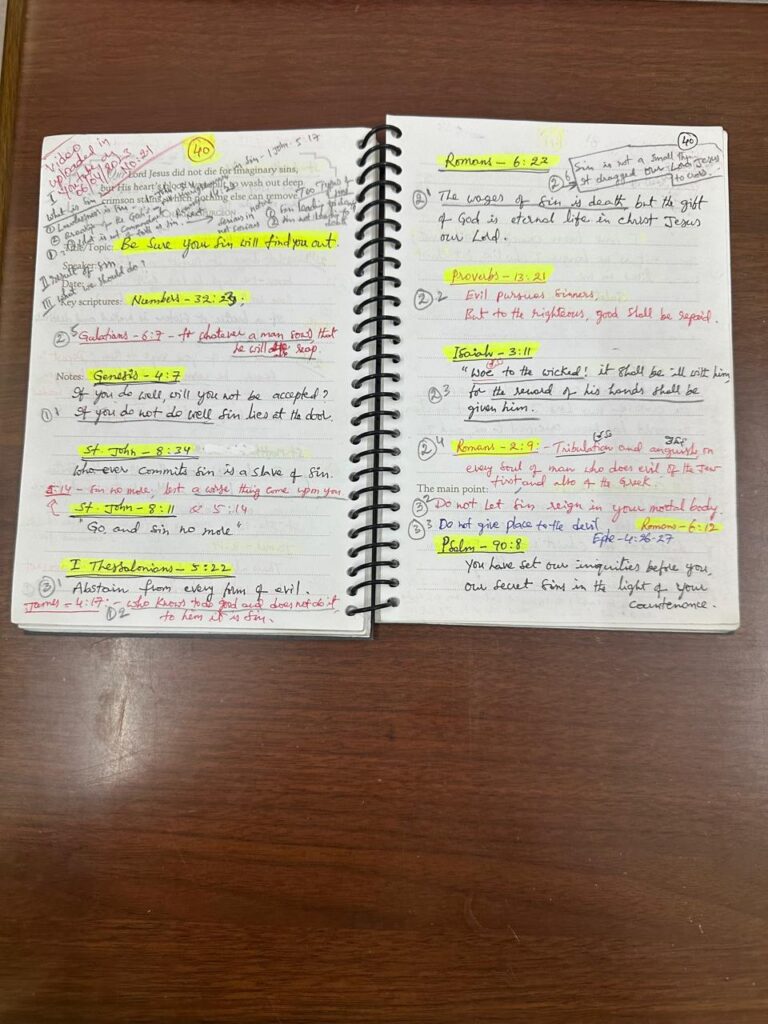 Video
uploaded in
on
06/01/2023
10:21
40
Sin - 1 John - 5:17
Lord Jesus did not die for imaginary sins,
but His heart's blood to wash out deep
crimson stains which nothing else can remove
I What is Sin
Two Types of
① Sin leading to death
② Sin not leading to death
Topic: Be Sure your Sin will find you out.
Speaker:
II Result of Sin
Date:
III What we should do?
Key scriptures: Numbers - 32:23.
②5 Galatians - 6:7 - whatever a man sows that
he will reap.
Notes: Genesis - 4:7
If you do well, will you not be accepted?
①1 If you do not do well Sin lies at the door.
St. John - 8:34
Who ever commits Sin is a slave of Sin.
5:14 - Sin no more, but a worse thing come upon you
St. John - 8:11 & 5:14
"Go, and Sin no more"
I Thessalonians - 5:22
③1 Abstain from every form of evil.
James - 4:17 - who knows to do good and does not do it
①2 to him it is Sin.
40
Romans - 6:23
②6 Sin is not a small thing
It dragged our Lord Jesus
to cross.
②1 The wages of Sin is death, but the gift
of God is eternal life in christ Jesus
our Lord.
Proverbs - 13:21
②2 Evil pursues Sinners,
But to the righteous, good Shall be repaid.
Isaiah - 3:11
"Woe to the wicked! it Shall be ill with him,
②3 for the reward of his hands Shall be
given him.
②4 Romans - 2:9: - Tribulation and anguish, on
every Soul of man who does evil of the Jew
first and also of the Greek.
The main point:
③2 Do not let Sin reign in your mortal body.
③3 Do not give place to the devil. Romans - 6:12
Ephe - 4:26-27
Psalm - 90:8
You have set our iniquities before you,
our secret Sins in the light of your
countenance.